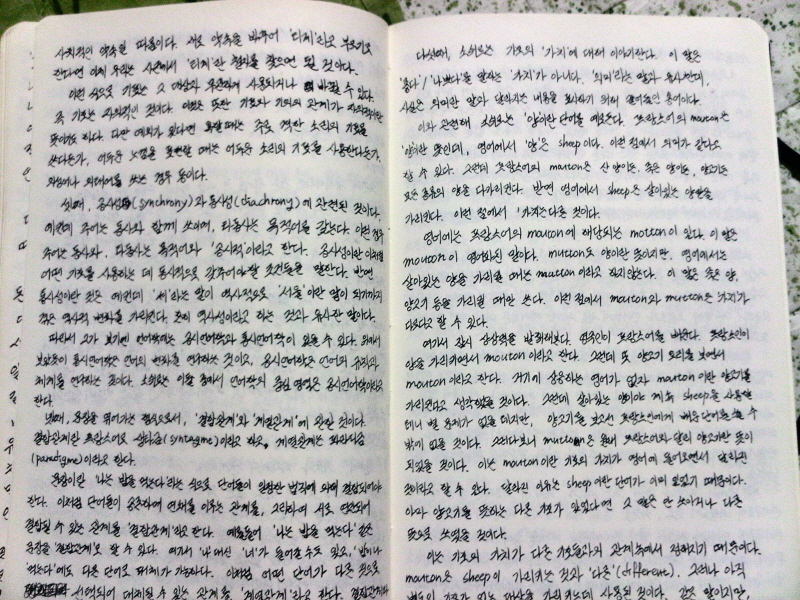 사회적인 약속일 따름이다. 서로 약속을 바꾸어 '타제'라고 부르기로
한다면 이제 우리는 사전에서 '타제'란 철자를 찾으면 될 것이다.
이런 식으로 기호는 그 대상과 무관하게 사용되거나 바뀔 수 있다.
즉 기호는 자의적인 것이다. 이것은 또한 기호와 기의의 관계가 자의적이란
뜻이기도 하다. 다만 예외가 있다면 욕할 때는 주로 격한 소리의 기호를
쓴다든가, 어두운 노랫말을 할 때는 어두운 소리의 기호를 사용한다든가,
의성어나 의태어를 쓰는 경우 등이다.
셋째, 공시성(synchrony)과 통시성(diachrony)에 관련된 것이다.
예컨대 주어는 동사와 함께 쓰이며, 타동사는 목적어를 갖는다. 이런 경우
주어는 동사와, 타동사는 목적어와 '공시적'이라고 한다. 공시성이란 이처럼
어떤 기호를 사용하는 데 동시적으로 갖추어야 할 조건들을 말한다. 반면
통시성이란 것은 예컨대 '셔'라는 말이 역사적으로 '서울'이란 말이 되기까지
겪은 역사적 변화를 가리킨다. 흔히 역사성이라고 하는 것과 유사한 말이다.
따라서 그가 보기엔 언어학에는 공시언어학과 통시언어학이 있을 수 있다. 위에서
보았듯이 통시언어학은 언어의 변화를 연구하는 것이고, 공시언어학은 언어의 규칙과
체계를 연구하는 것이다. 소쉬르는 이 중에서 언어학의 중심 영역은 공시언어학이라고
한다.
넷째, 문장을 엮어가는 형식으로서, '결합관계'와 '계열관계'에 관한 것이다.
결합관계란 프랑스어로 생타금(syntagme)이라고 하고, 계열관계는 파라디금
(paradigme)이라고 한다.
문장이란 '나는 밥을 먹는다'라는 식으로 단어들이 일정한 법칙에 의해 결합되어야
한다. 이처럼 단어들이 공존하며 연쇄를 이루는 관계를, 그리하여 서로 연관되어
결합될 수 있는 관계를 '결합관계'라고 한다. 예를 들어 '나는 밥을 먹는다' 같은
문장을 '결합관계'로 할 수 있다. 여기서 '나' 대신 '너'가 들어갈 수도 있고, '밥'이나
'먹는다'에도 다른 단어로 대체가 가능하다. 이처럼 어떤 단어가 다른 것으로
선택되어 대체될 수 있는 관계를 '계열관계'라고 한다. 결합관계와
다섯째, 소쉬르는 기호의 '가치'에 대해 이야기한다. 이 말은
'좋다'/'나쁘다'를 말하는 '가치'가 아니다. '의미'라는 말과 유사한데,
사실은 의미란 말과 달라지는 내용을 표시하기 위해 만들어진 용어이다.
이와 관련해 소쉬르는 '양'이란 단어를 예로 든다. 프랑스어의 mouton은
'양'이란 뜻인데, 영어에서 '양'은 sheep이다. 이런 점에서 의미가 같다고
할 수 있다. 그런데 프랑스어의 mouton은 산 양이든, 죽은 양이든, 양고기든
모든 종류의 양을 다 가리킨다. 반면 영어에서 sheep은 살아있는 양만을
가리킨다. 이런 점에서 '가치'는 다른 것이다.
영어에는 프랑스어의 mouton에 해당되는 motton이 있다. 이 말은
mouton이 영어화된 말이다. mutton도 양이란 뜻이지만, 영어에서는
살아있는 양을 가리킬 때는 mutton이라고 하지 않는다. 이 말은 죽은 양,
양고기 등을 가리킬 때만 쓴다. 이런 점에서 mouton와 mutton은 가치가
다르다고 할 수 있다.
여기서 잠시 상상력을 발휘해보다. 영국인이 프랑스어를 배운다. 프랑스인이
양을 가리키면서 mouton이라고 한다. 그런데 또 양고기 요리를 보여서
mouton이라고 한다. 거기에 상응하는 영어가 없자 mouton이란 양고기를
가리킨다고 생각했을 것이다. 그런데 살아있는 양이야 계속 sheep을 사용할
테니 별 문제가 없을 테지만, 양고기를 보고선 프랑스인에게 배운 단어를 쓸 수
밖에 없을 것이다. 그러다보니 mutton은 원래 프랑스어와 달리 양고기란 뜻이
되었을 것이다. 이는 mouton이란 기호의 가치가 영어에 들어오면서 달라진
것이라고 할 수 있다. 달라진 이유는 sheep이란 단어가 이미 있었기 때문이다.
아마 양고기를 뜻하는 다른 기호가 있었다면 그 말은 안 쓰이거나 다른
뜻으로 쓰였을 것이다.
이는 기호의 가치가 다른 기호들과의 관계 속에서 정해지기 때문이다.
mouton은 sheep이 가리키는 것과 '다른'(different), 그러나 아직